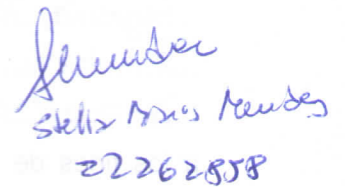 Stella Maris Mendez
22262858